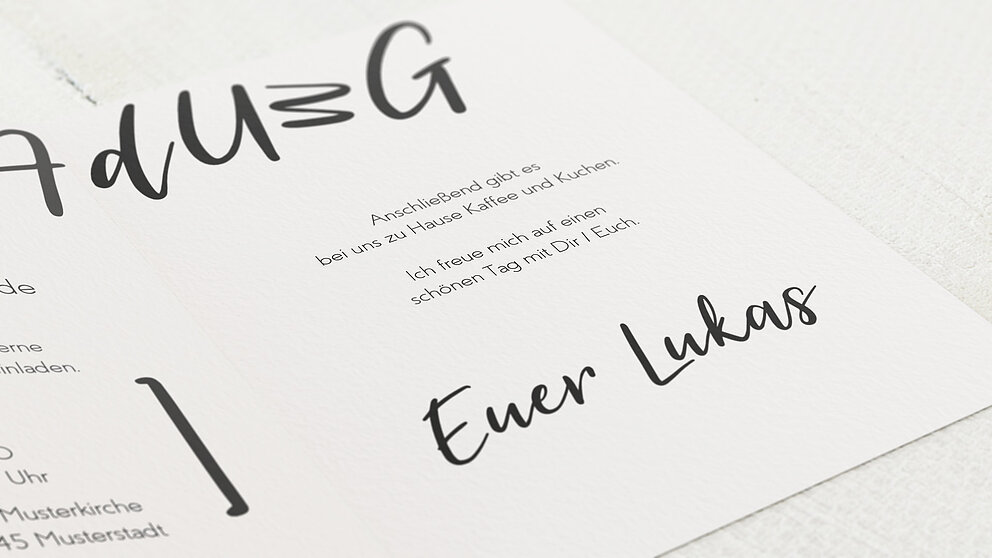 AdU≡G
de
erne
inladen.
Uhr
Musterkirche
45 Musterstadt
Anschließend gibt es
bei uns zu Hause Kaffee und Kuchen.
Ich freue mich auf einen
schönen Tag mit Dir / Euch.
Euer Lukas